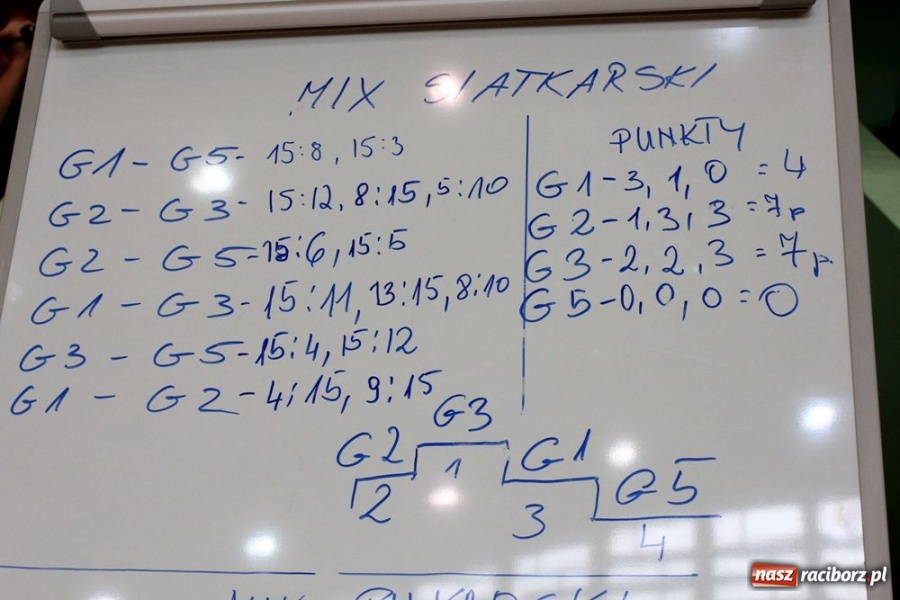 MIX SIATKARSKI
G1 - G5 - 15:8, 15:3
G2 - G3 - 15:12, 8:15, 5:10
G2 - G5 - 15:6, 15:5
G1 - G3 - 15:11, 13:15, 8:10
G3 - G5 - 15:4, 15:12
G1 - G2 - 4:15, 9:15
PUNKTY
G1 - 3, 1, 0 = 4
G2 - 1, 3, 3 = 7p
G3 - 2, 2, 3 = 7p.
G5 - 0, 0, 0 = 0
G3
G2 1 G1
2 3 G5
4
nasz raciborz.pl